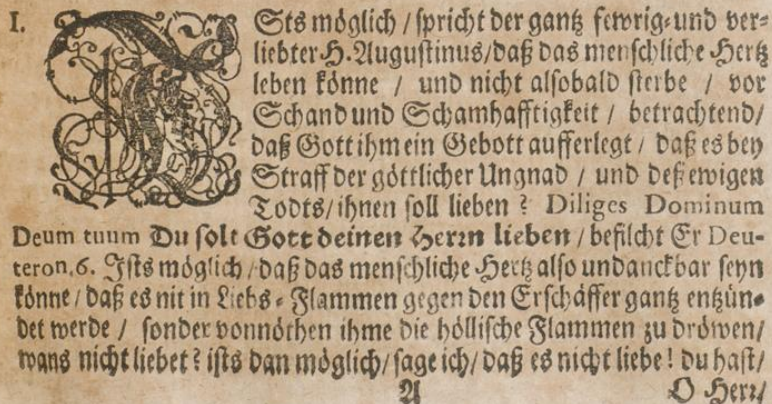 I. ISts möglich / spricht der gantz fewrig⸗und ver⸗
liebter H. Augustinus/daß das menschliche Hertz
leben könne / und nicht alsobald sterbe / vor
Schand und Schamhafftigkeit / betrachtend/
daß Gott ihm ein Gebott aufferlegt / daß es bey
Straff der göttlicher Ungnad / und deß ewigen
Todts/ihnen soll lieben ? Diliges Dominum
Deum tuum Du solt Gott deinen Herrn lieben / befilcht Er Deu-
teron.6. Ists möglich / daß das menschliche Hertz also undanckbar seyn
könne / daß es nit in Liebs⸗Flammen gegen den Erschäffer gantz entzün⸗
det werde / sonder vonnöthen ihme die höllische Flammen zu dröwen/
wans nicht liebet? ists dan möglich/ sage ich/ daß es nicht liebe! du hast/
A O Herr/